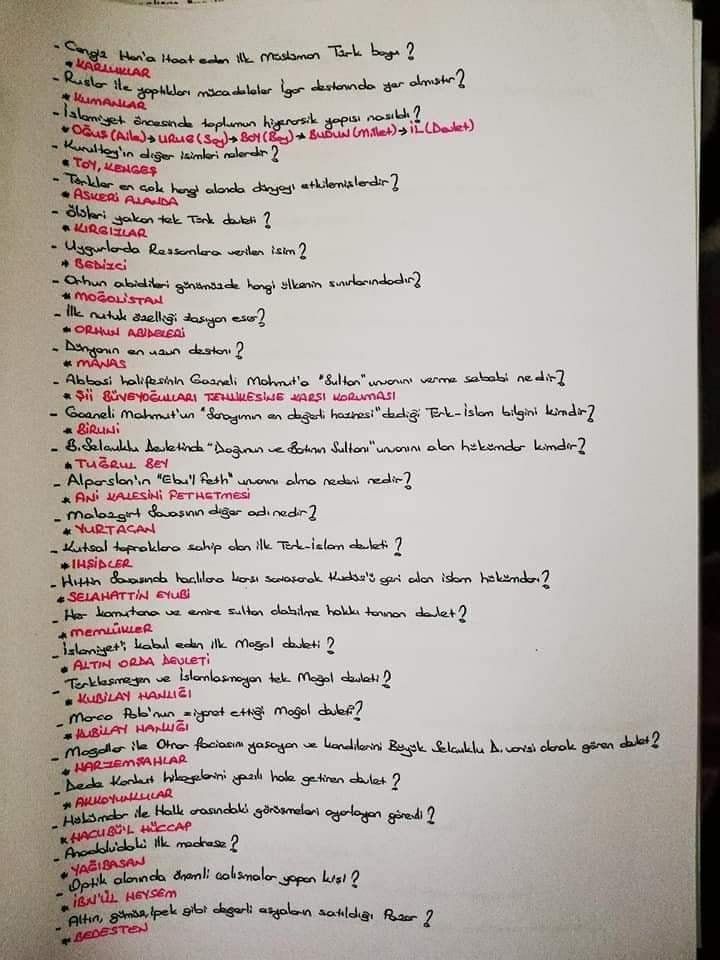 - Cengiz Han'a itaat eden ilk Müslüman Türk boyu?
* KARLUKLAR
- Ruslar ile yaptıkları mücadeleler İgor destanında yer almıştır?
* KUMANLAR
- İslamiyet öncesinde toplumun hiyerarşik yapısı nasıldı?
* OĞUŞ (Aile) → URUG (Soy) → BOY (Bey) → BUDUN (Millet) → İL (Devlet)
- Kurultay'ın diğer isimleri nelerdir?
* TOY, KENGEŞ
- Türkler en çok hangi alanda dünyayı etkilemişlerdir?
* ASKERİ ALANDA
- Ölüleri yakan tek Türk devleti?
* KIRGIZLAR
- Uygurlarda Ressamlara verilen isim?
* BEDİZCİ
- Orhun abidileri günümüzde hangi ülkenin sınırlarındadır?
* MOĞOLİSTAN
- İlk nutuk özelliği taşıyan eser?
* ORHUN ABİDELERİ
- Dünyanın en uzun destanı?
* MANAS
- Abbasi halifesinin Gazneli Mahmut'a "Sultan" unvanını verme sebebi nedir?
* Şİİ BÜVEYOĞULLARI TEHLİKESİNE KARŞI KORUMASI
- Gazneli Mahmut'un "Sarayımın en değerli hazinesi" dediği Türk-İslam bilgini kimdir?
* BİRUNİ
- B. Selçuklu Devletinde "Doğunun ve Batının Sultanı" unvanını alan hükümdar kimdir?
* TUĞRUL BEY
- Alparslan'ın "Ebu'l Feth" unvanını alma nedeni nedir?
* ANİ KALESİNİ FETHETMESİ
- Malazgirt Savaşının diğer adı nedir?
* YURTAÇAN
- Kutsal topraklara sahip olan ilk Türk-İslam devleti?
* IHŞİDLER
- Hıttin Savaşında haçlılara karşı savaşarak Kudüs'ü geri alan islam hükümdarı?
* SELAHATTİN EYUBİ
- Her komutana ve emire sultan olabilme hakkı tanınan devlet?
* MEMLÜKLER
- İslamiyet'i kabul eden ilk Moğol devleti?
* ALTIN ORDA DEVLETİ
- Türkleşmeyen ve İslamlaşmayan tek Moğol devleti?
* KUBİLAY HANLIĞI
- Marco Polo'nun ziyaret ettiği Moğol devleti?
* KUBİLAY HANLIĞI
- Moğollar ile Otrar faciasını yaşayan ve kendilerini Büyük Selçuklu D. varisi olarak gören devlet?
* HARZEMŞAHLAR
- Dede Korkut hikayelerini yazılı hale getiren devlet?
* AKKOYUNLULAR
- Hükümdar ile Halk arasındaki görüşmeleri ayarlayan görevli?
* HACUBÜ'L HÜCCAP
- Anadoludaki ilk medrese?
* YAĞIBASAN
- Optik alanında önemli çalışmalar yapan kişi?
* İBN'ÜL HEYSEM
- Altın, gümüş, ipek gibi değerli eşyaların satıldığı Pazar?
* BEDESTEN